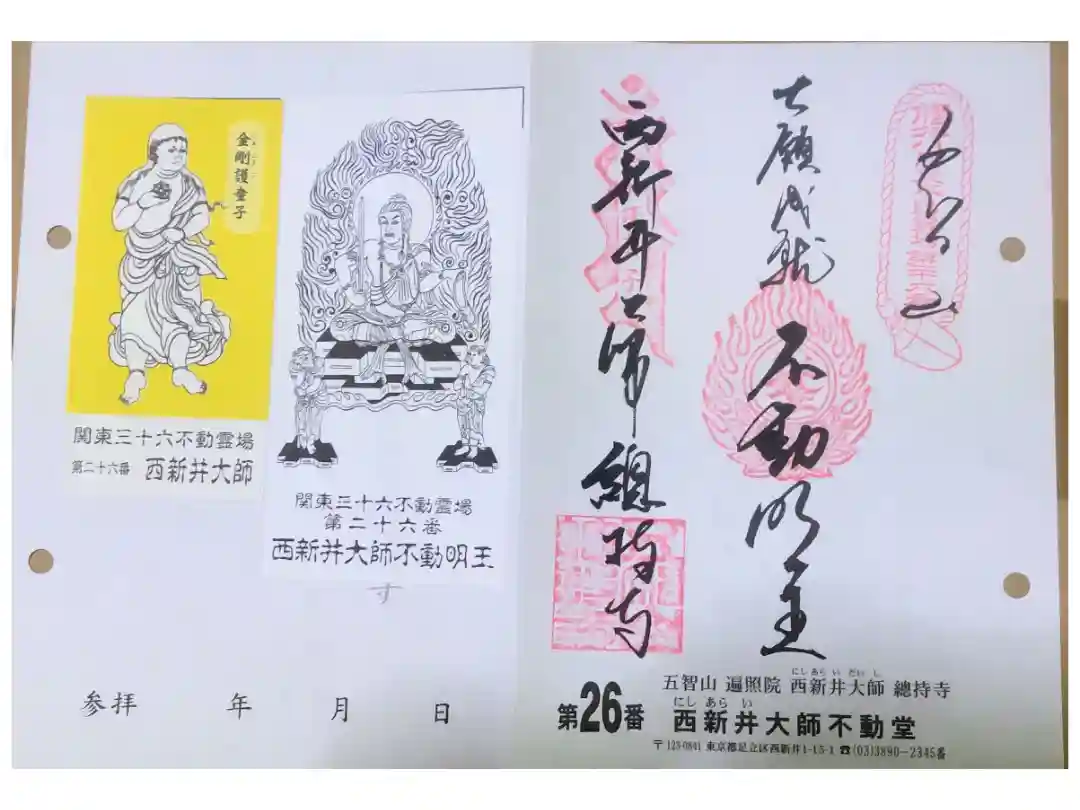 金剛護童子
関東三十六不動霊場
第二十六番 西新井大師
関東三十六不動霊場
第二十六番
西新井大師不動明王
参拝 年 月 日
大願成就 不動明王
西新井大師 總持寺
五智山 遍照院 西新井大師 總持寺
にしあらい だいし
第26番 西新井大師不動堂
にし あら い
〒123-0841 東京都足立区西新井1-15-1 ☎(03)3890-2345番